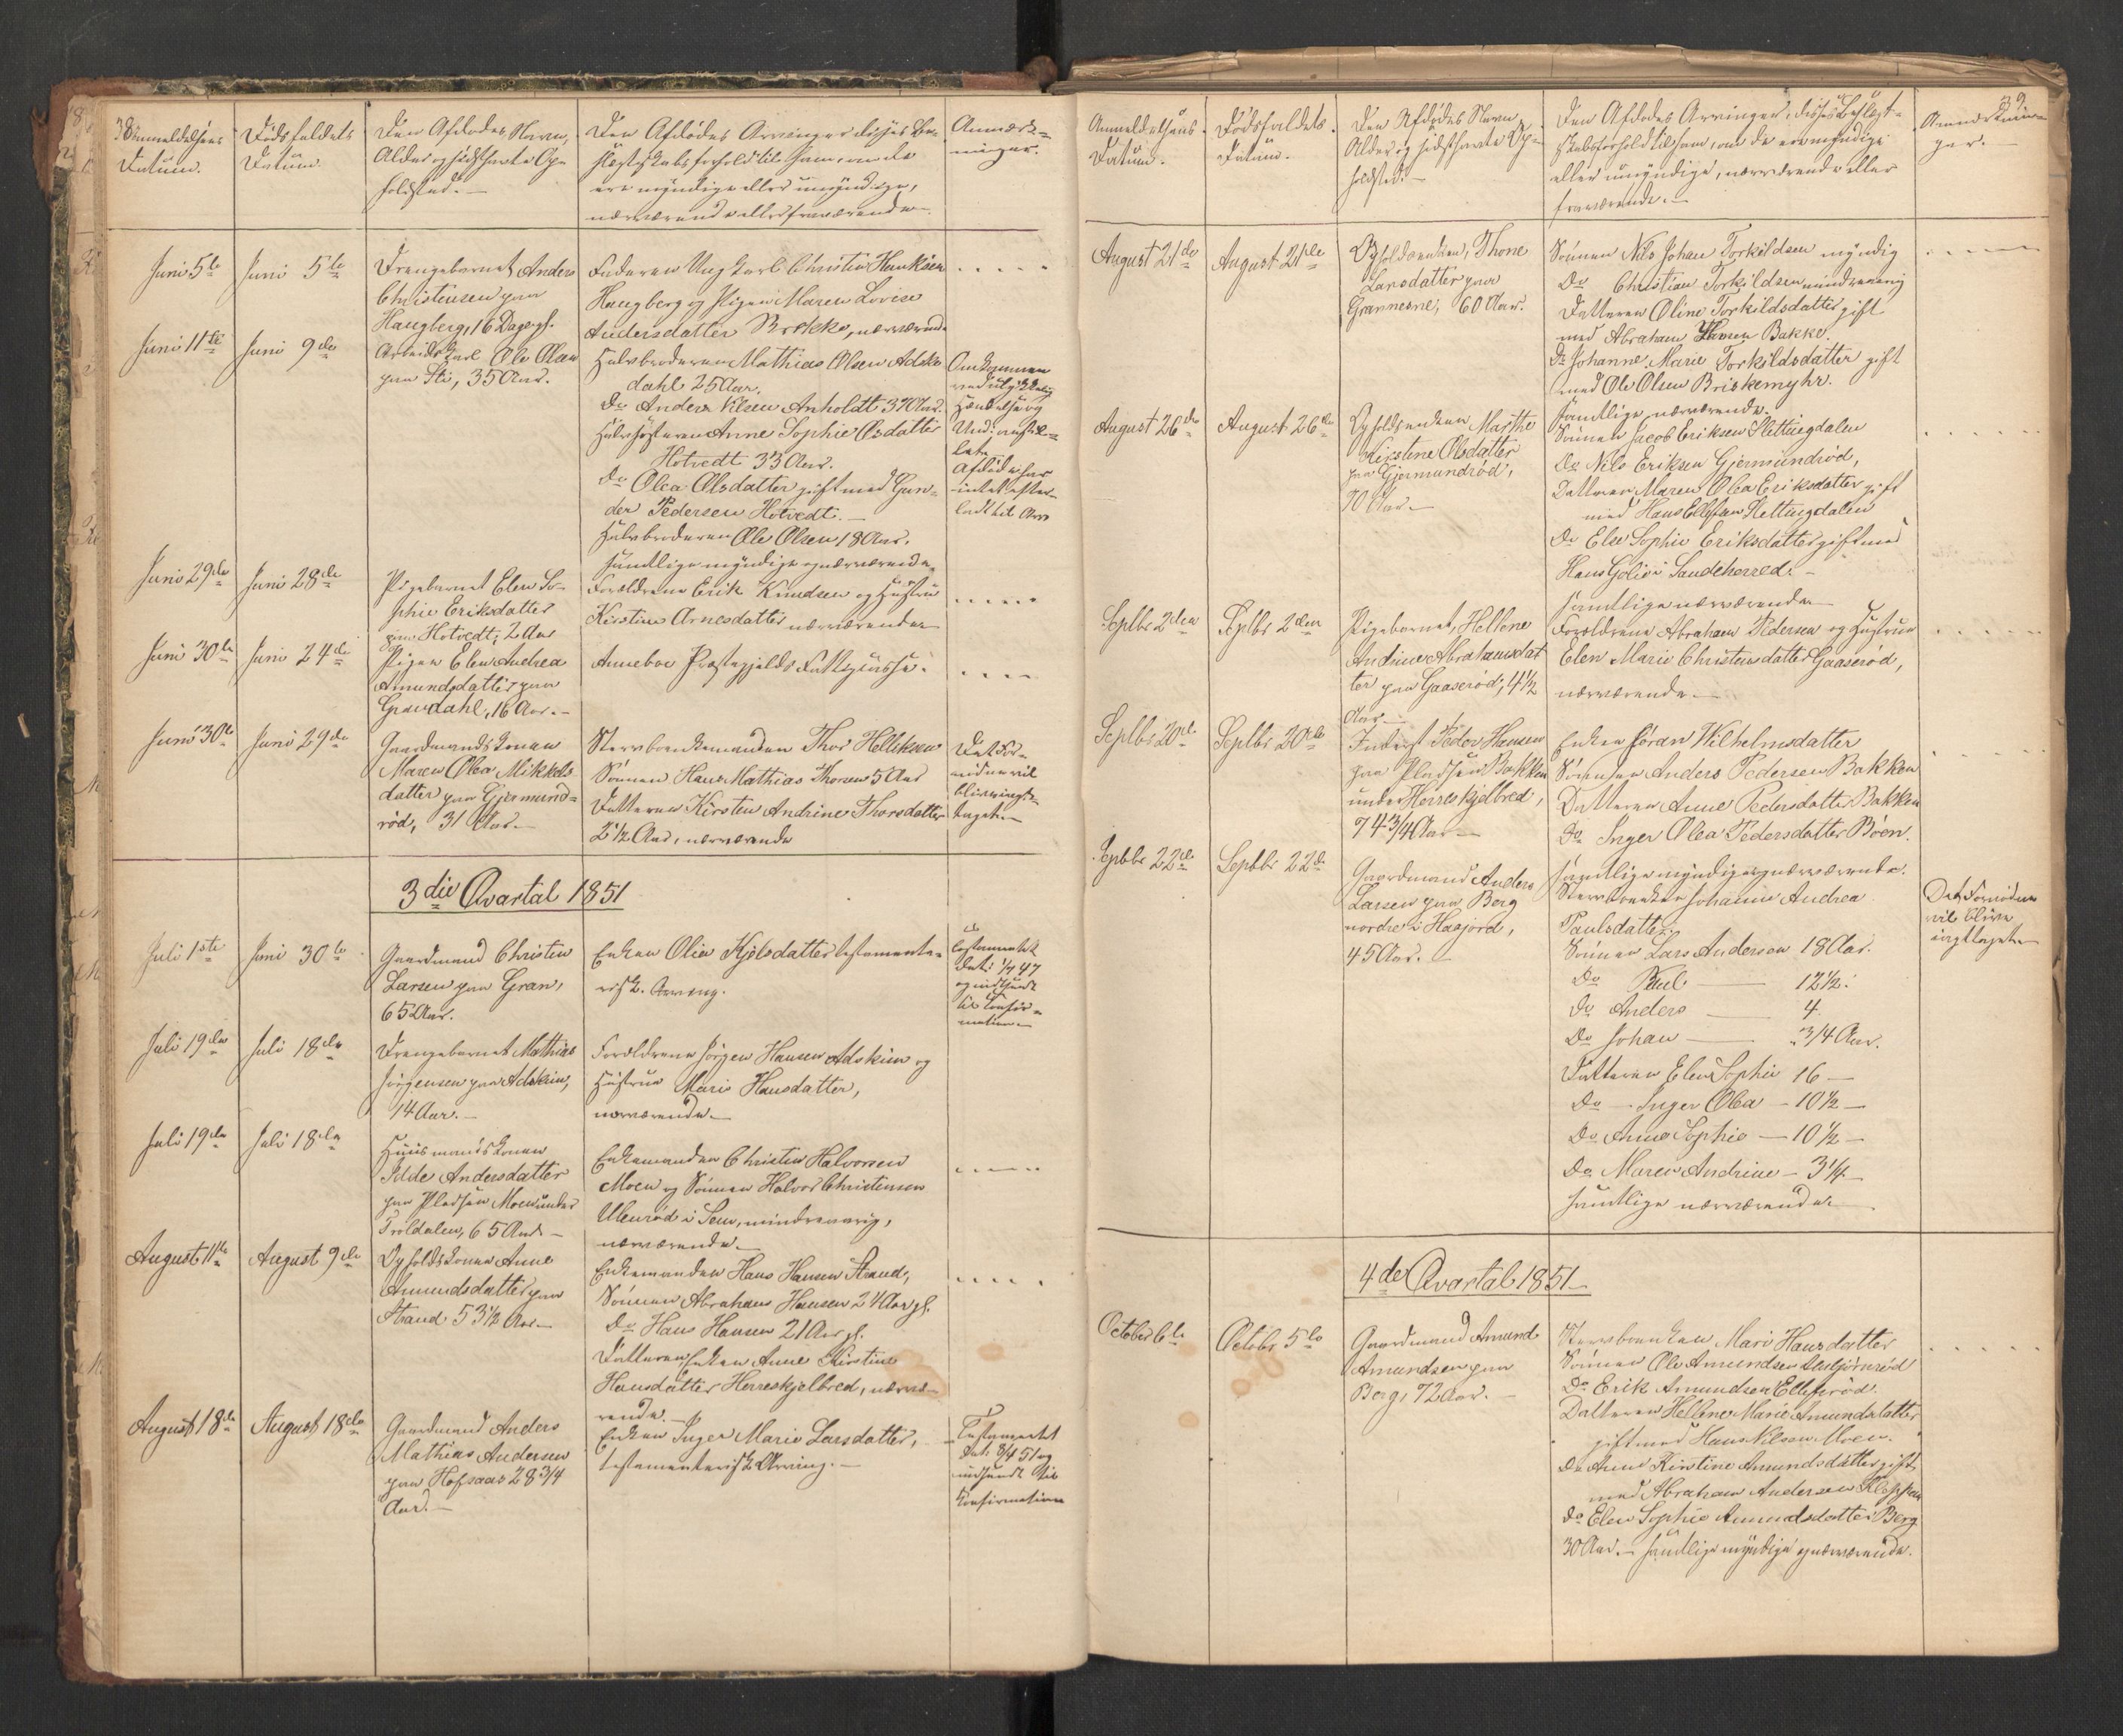 38
Anmeldelsens
Datum.
Dødsfaldets
Datum
Den Afdødes Navn,
Alder og sidst havte Op-
holdsted.-
Den Afdødes Arvinger disses Be-
slægtskabsforhold til ham, om de
ere myndige eller umyndige,
nærværende eller fraværende.
Anmærk-
ninger.
Juni 5te
Juni 5te
Drengebarnet Anders
Christensen paa
Haugberg, 16 Dage gl.
Faderen Ungkarl Christen Hansen
Haugberg og Pigen Maren Lovise
Andersdatter Brekke, nærværende
Juni 11te
Juni 9de
Arbeidskarl Ole Olsen
paa Sti, 35 Aar.
Halvbroderen Mathias Olsen Adske
dahl 25 Aar.
Do Anders Nilsen Anholdt 37 Aar.
Halvsøsteren Anne Sophie Olsdatter
Hotvedt 33 Aar.
Do Olea Olsdatter gift med Gun-
der Pedersen Hotvedt.-
Halvbroderen Ole Olsen 18 Aar.
samtlige myndige og nærværende.
Omkommen
ved ulykkelig
Hændelse og
Afdøde har
intet efter-
ladt til Arv
Juni 29de
Juni 28de
Pigebarnet Elen So-
phie Eriksdatter
paa Hotvedt, 2 Aar
Forældrene Erik Knudsen og Hustru
Kirstine Arnesdatter nærværende
Juni 30te
Juni 24de
Pigen Elen Andrea
Amundsdatter paa
Gravdahl, 16 Aar.-
Anneboe Præstegjelds Fattigkasse.
Juni 30te
Juni 29de
Gaardmandskonen
Maren Olea Mikkels
datter paa Gjermund-
rød, 31 Aar.-
Stervboenkemanden Thor Helliksen
Sønnen Hans Mathias Thorsen 5 Aar
Datteren Kirsten Andrine Thorsdatter
2 1/2 Aar, nærværende
Det For-
nødne vil
blive iagt-
taget.-
3die Qvartal 1851
Juli 1ste
Juni 30te
Gaardmand Christen
Larsen paa Gran,
65 Aar.
Enken Olia Kjølsdatter testamenta-
risk Arving.
Testamentet
dat: 1/7 47
og indsendt
til Confir-
mation.-
Juli 19de
Juli 18de
Drengebarnet Mathias
Jørgensen paa Adskim,
14 Aar.-
Forældrene Jørgen Hansen Adskim og
Hustrue Marie Hansdatter,
nærværende.-
Juli 19de
Juli 18de
Huusmandskonen
Idde Andersdatter
paa Pladsen Moen under
Troldalen, 65 Aar.-
Enkemanden Christen Halvorsen
Moen og Sønnen Halvor Christensen
Ulenrød i Sem, mindreaarig,
nærværende.-
August 11te
August 9de
Opholdskonen Anne
Amundsdatter paa
Strand 53 1/2 Aar.-
Enkemanden Hans Hansen Strand,
Sønnen Abraham Hansen 24 Aar gl.
Do Hans Hansen 21 Aar gl.
Datteren Enken Anne Kirstine
Hansdatter Herreskjelbred, nærvæ-
rende.-
August 18de
August 18de
Gaardmand Anders
Mathias Andersen
paa Hofsaas 28 3/4
Aar.-
Enken Inger Marie Larsdatter,
testamentarisk Arving.-
Testamentet
dat: 8/4 51 og
indsendt til
Confirmation
39
Anmeldelsens
Datum.
Dødsfaldets
Datum.
Den Afdødes Navn
Alder og sidst havte Op-
holdsted.-
Den Afdødes Arvinger, disses Beslægt-
skabsforhold til ham, om de ere myndige
eller umyndige, nærværende eller
fraværende.-
Anmærknin-
ger.
August 21de
August 21de
Opholdsenken, Thone
Larsdatter paa
Grannesne, 60 Aar.
Sønnen Nils Johan Torkildsen myndig
Do Christian Torkildsen mindreaarig
Datteren Oline Torkildsdatter gift
med Abraham Hansen Bakke.
Do Johanne Marie Torkildsdatter gift
med Ole Olsen Briskemyhr.
samtlige nærværende.
August 26de
August 26de
Opholdsenken Marthe
Kirstine Olsdatter
paa Gjermundrød,
70 Aar.-
Sønnen Jacob Eriksen Slettingdalen
Do Nils Eriksen Gjermundrød,
Datteren Maren Olea Eriksdatter gift
med Hans Ellefsen Slettingdalen
Do Else Sophie Eriksdatter gift med
Hans Golie i Sandeherred.-
samtlige nærværende
Septbr 2den
Septbr 2den
Pigebarnet, Hellene
Andrine Abrahamsdat
ter paa Gaaserød, 4 1/2
Aar.-
Forældrene Abraham Pedersen og Hustrue
Elen Marie Christensdatter Gaaserød,
nærværende.-
Septbr 20de
Septbr 20de
Inderst Peder Hansen
paa Pladsen Bakken
under Herreskjelbred,
74 3/4 Aar.-
Enken Søran Wilhelmsdatter
Sønnen Anders Pedersen Bakken
Datteren Anne Pedersdatter Bakken
Do Inger Olea Pedersdatter Bøen.
samtlige myndige og nærværende.
Septbr 22de
Septbr 22de
Gaardmand Anders
Larsen paa Berg
nordre i Haasjord,
45 Aar.-
Stervboenken Johanne Andrea
Paulsdatter.
Sønnen Lars Andersen 18 Aar.
Do Paul — 12 1/2.
Do Anders — 4
Do Johan — 3/4 Aar.
Datteren Elen Sophie 16 —
Do — Inger Olea — 10 1/2 —
Do Anne Sophie — 10 1/2 —
Do Maren Andrine — 3 1/4 —
samtlige nærværende.
Det Fornødne
vil blive
iagttaget.
4de Qvartal 1851-
October 6te
Octobr 5te
Gaardmand Amund
Amundsen paa
Berg, 72 Aar.-
Stervboenken, Mari Hansdatter
Sønnen Ole Amundsen
Do Erik Amundsen Ellefsrød.
Datteren Hellene Marie Amundsdatter
gift med Hans Nilsen Moen.
Do Anne Kirstine Amundsdatter gift
med Abraham Andersen Kleppan
Do Elen Sophie Amundsdatter Berg
30 Aar.- samtlige myndige og nærværende.